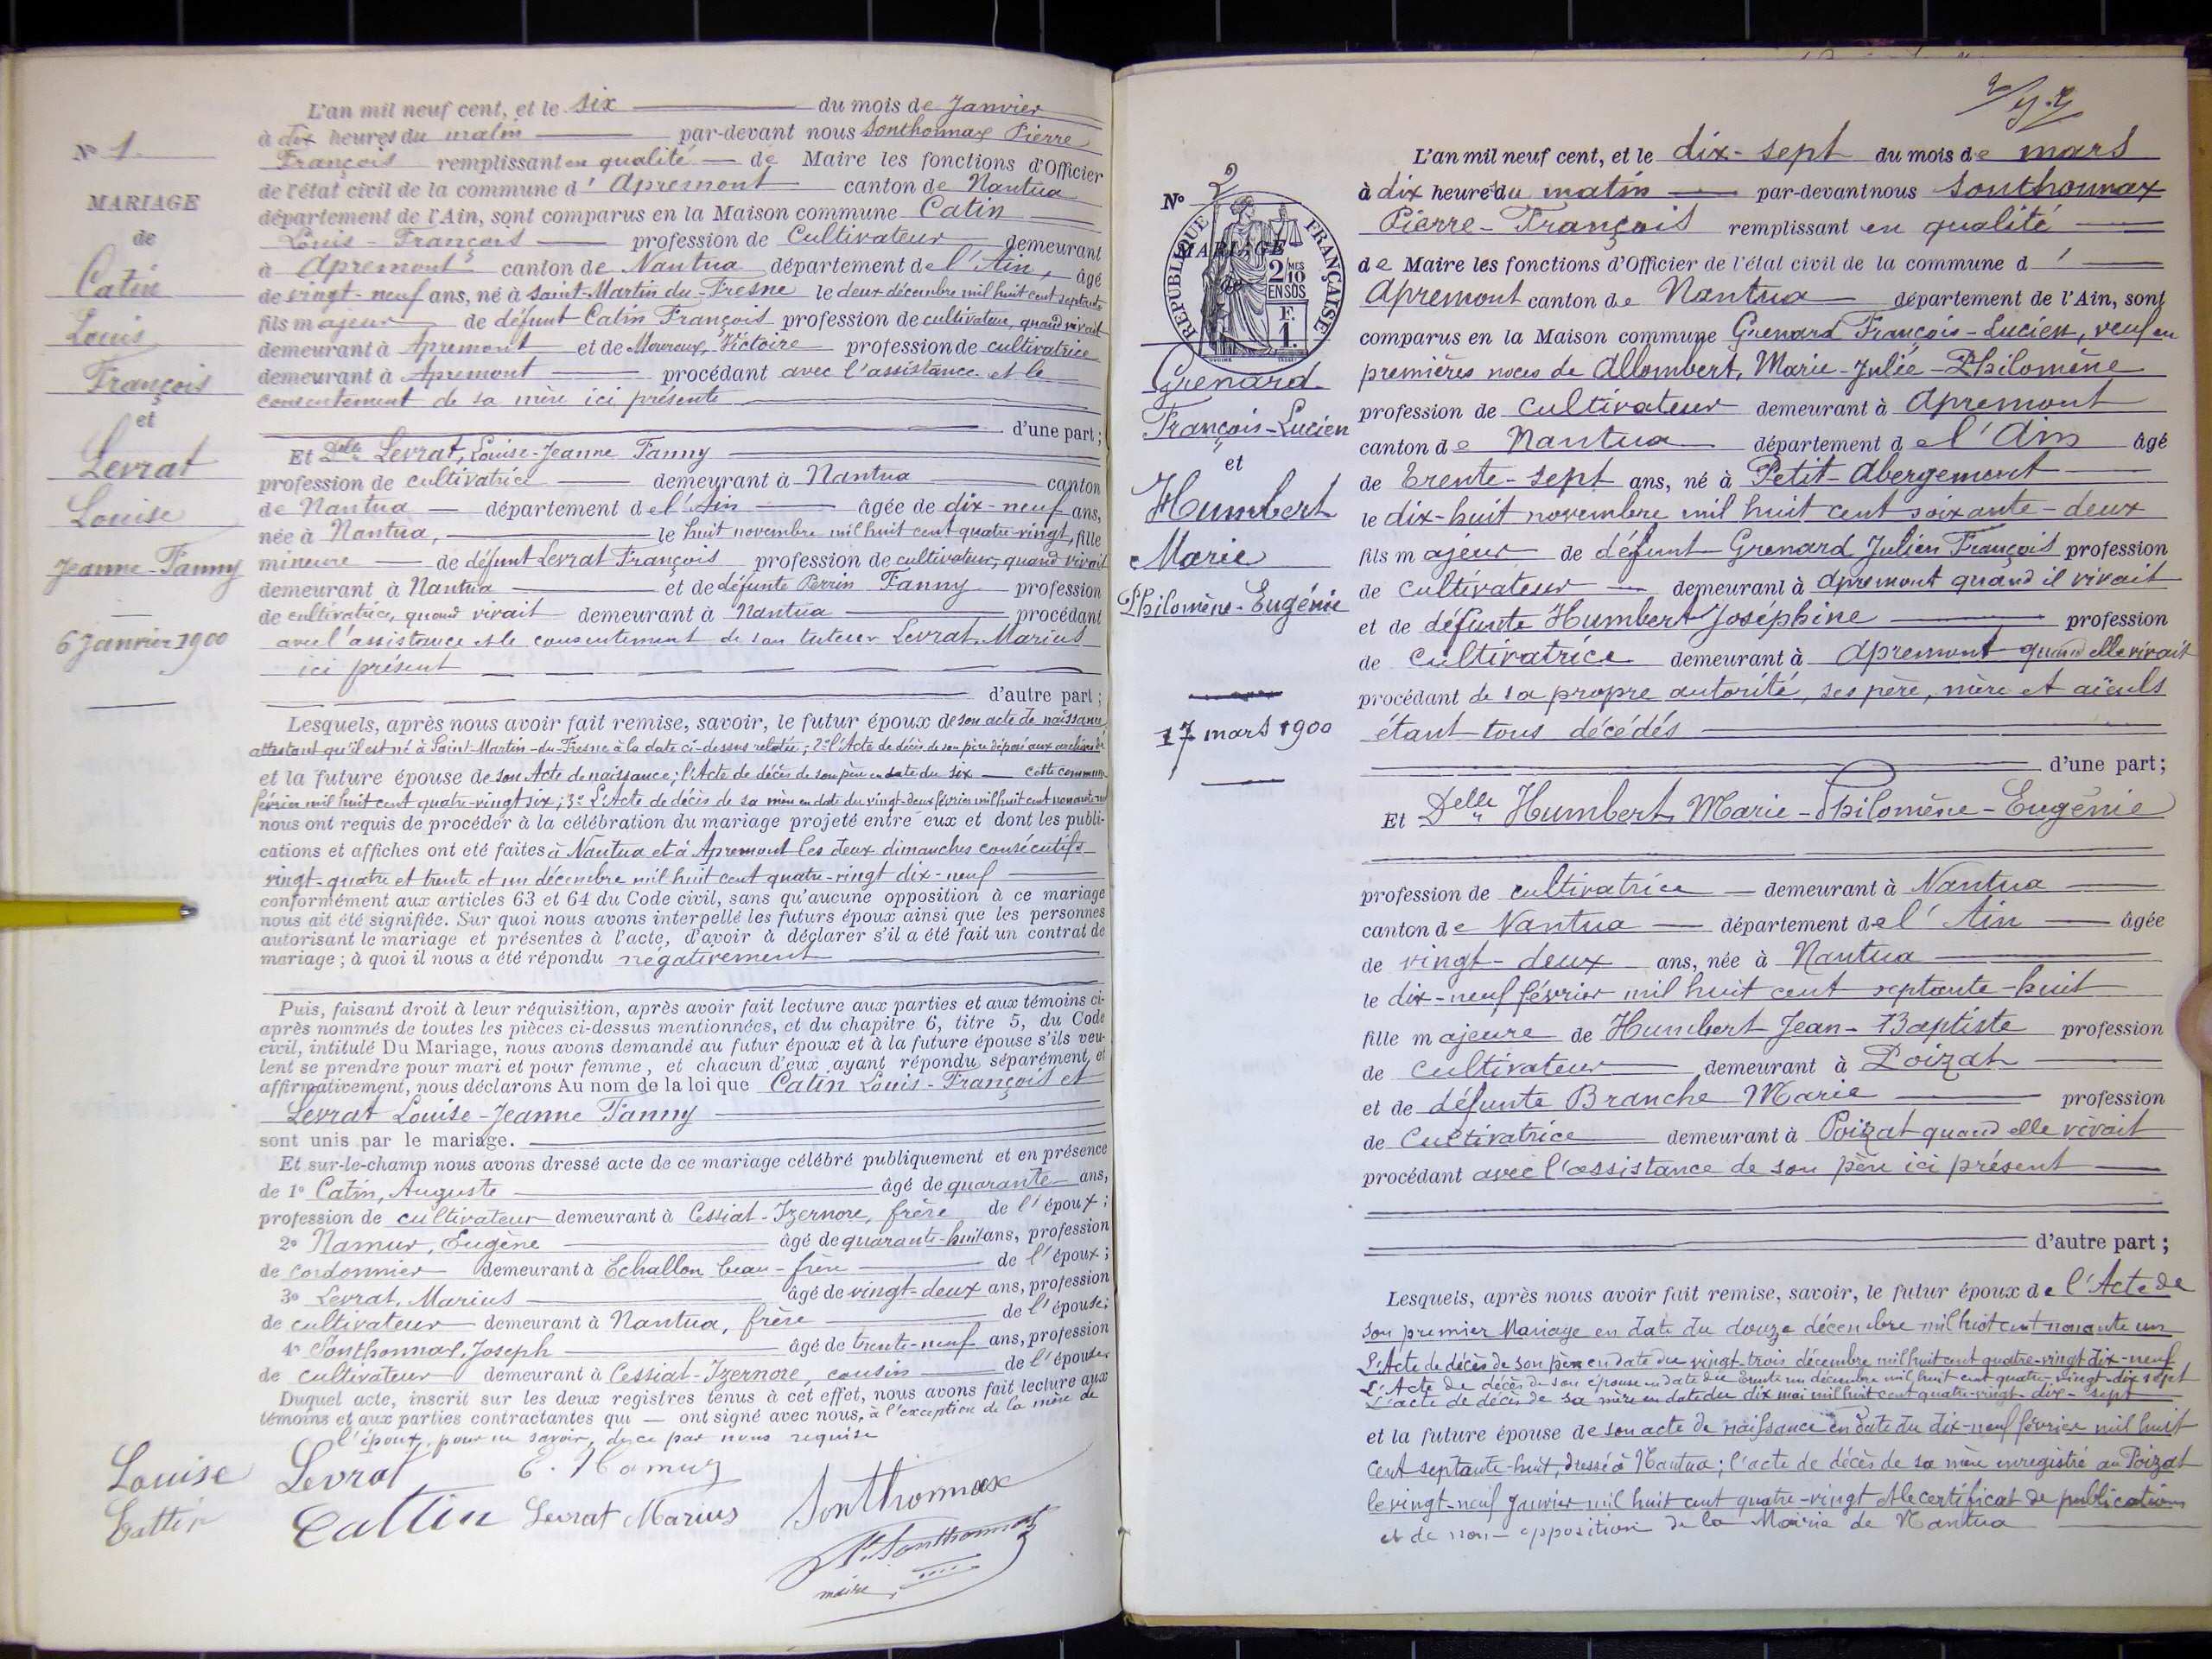 N° 1.
MARIAGE
de
Catin
Louis
François
et
Levrat
Louise
Jeanne-Fanny
6 Janvier 1900
L'an mil neuf cent, et le six du mois de Janvier
à dix heures du matin par-devant nous Sonthonnax Pierre
François remplissant en qualité de Maire les fonctions d'Officier
de l'état civil de la commune d' Apremont canton de Nantua
département de l'Ain, sont comparus en la Maison commune Catin
Louis-François profession de Cultivateur demeurant
à Apremont canton de Nantua département de l'Ain, âgé
de vingt-neuf ans, né à Saint-Martin du-Fresne le deux décembre mil huit cent septante
fils majeur de défunt Catin François profession de cultivateur, quand vivait
demeurant à Apremont et de Victoire profession de cultivatrice
demeurant à Apremont procédant avec l'assistance et le
consentement de sa mère ici présente
d'une part ;
Et Delle Levrat, Louise-Jeanne Fanny
profession de cultivatrice demeurant à Nantua canton
de Nantua département de l'Ain âgée de dix-neuf ans,
née à Nantua, le huit novembre mil huit cent quatre-vingt, fille
mineure de défunt Levrat François profession de cultivateur, quand vivait
demeurant à Nantua et de défunte Perrin Fanny profession
de cultivatrice, quand vivait demeurant à Nantua procédant
avec l'assistance et le consentement de son tuteur Levrat Marius
ici présent
d'autre part ;
Lesquels, après nous avoir fait remise, savoir, le futur époux de son acte de naissance
attestant qu'il est né à Saint-Martin-du-Fresne à la date ci-dessus relatée ; 2° l'Acte de décès de son père déposé aux archives de
et la future épouse de son Acte de naissance ; l'Acte de décès de son père en date du six cette commune
février mil huit cent quatre-vingt six ; 3° L'Acte de décès de sa mère en date du vingt-deux février mil huit cent nonante-neuf
nous ont requis de procéder à la célébration du mariage projeté entre eux et dont les publi-
cations et affiches ont été faites à Nantua et à Apremont les deux dimanches consécutifs
vingt-quatre et trente et un décembre mil huit cent quatre-vingt dix-neuf
conformément aux articles 63 et 64 du Code civil, sans qu'aucune opposition à ce mariage
nous ait été signifiée. Sur quoi nous avons interpellé les futurs époux ainsi que les personnes
autorisant le mariage et présentes à l'acte, d'avoir à déclarer s'il a été fait un contrat de
mariage ; à quoi il nous a été répondu négativement
Puis, faisant droit à leur réquisition, après avoir fait lecture aux parties et aux témoins ci-
après nommés de toutes les pièces ci-dessus mentionnées, et du chapitre 6, titre 5, du Code
civil, intitulé Du Mariage, nous avons demandé au futur époux et à la future épouse s'ils veu-
lent se prendre pour mari et pour femme, et chacun d'eux ayant répondu séparément et
affirmativement, nous déclarons Au nom de la loi que Catin Louis-François et
Levrat Louise-Jeanne Fanny
sont unis par le mariage.
Et sur-le-champ nous avons dressé acte de ce mariage célébré publiquement et en présence
de 1° Catin, Auguste âgé de quarante ans,
profession de cultivateur demeurant à Cessiat-Izernore, frère de l'époux ;
2° Namur, Eugène âgé de quarante-huit ans, profession
de cordonnier demeurant à Echallon beau-frère de l'époux ;
3° Levrat, Marius âgé de vingt-deux ans, profession
de cultivateur demeurant à Nantua, frère de l'épouse ;
4° Sonthonnax, Joseph âgé de trente-neuf ans, profession
de cultivateur demeurant à Cessiat-Izernore, cousin de l'épouse.
Duquel acte, inscrit sur les deux registres tenus à cet effet, nous avons fait lecture aux
témoins et aux parties contractantes qui ont signé avec nous, à l'exception de la mère de
l'époux, pour ne savoir, de ce par nous requise
Louise Levrat E. Namur Sonthonnax
Cattin Cattin Levrat Marius
P. Sonthonnax
maire
N° 2
RÉPUBLIQUE FRANÇAISE
2 MES 10
EN SUS
F.
1.
MARIAGE
de
Grenard
François-Lucien
et
Humbert
Marie
Philomène-Eugénie
17 mars 1900
L'an mil neuf cent, et le dix-sept du mois de mars
à dix heures du matin par-devant nous Sonthonnax
Pierre-François remplissant en qualité
de Maire les fonctions d'Officier de l'état civil de la commune d'
Apremont canton de Nantua département de l'Ain, sont
comparus en la Maison commune Grenard François-Lucien, veuf en
premières noces de Allombert, Marie-Julie-Philomène
profession de cultivateur demeurant à Apremont
canton de Nantua département de l'Ain âgé
de trente-sept ans, né à Petit-Abergement
le dix-huit novembre mil huit cent soixante-deux
fils majeur de défunt Grenard Julien François profession
de cultivateur demeurant à Apremont quand il vivait
et de défunte Humbert Joséphine profession
de cultivatrice demeurant à Apremont quand elle vivait
procédant de sa propre autorité, ses père, mère et aïeuls
étant tous décédés
d'une part ;
Et Delle Humbert, Marie-Philomène-Eugénie
profession de cultivatrice demeurant à Nantua
canton de Nantua département de l'Ain âgée
de vingt-deux ans, née à Nantua
le dix-neuf février mil huit cent septante-huit
fille majeure de Humbert Jean-Baptiste profession
de cultivateur demeurant à Poizat
et de défunte Branche Marie profession
de cultivatrice demeurant à Poizat quand elle vivait
procédant avec l'assistance de son père ici présent
d'autre part ;
Lesquels, après nous avoir fait remise, savoir, le futur époux de l'Acte de
son premier Mariage en date du douze décembre mil huit cent nonante un
L'Acte de décès de son père en date du vingt-trois décembre mil huit cent quatre-vingt dix-neuf
L'Acte de décès de son épouse en date du trente un décembre mil huit cent quatre-vingt-dix sept
L'acte de décès de sa mère en date du dix mai mil huit cent quatre-vingt-dix-sept
et la future épouse de son acte de naissance en date du dix-neuf février mil huit
cent septante-huit, dressé à Nantua ; l'acte de décès de sa mère enregistré au Poizat
le vingt-neuf Janvier mil huit cent quatre-vingt et le certificat de publications
et de non-opposition de la Mairie de Nantua